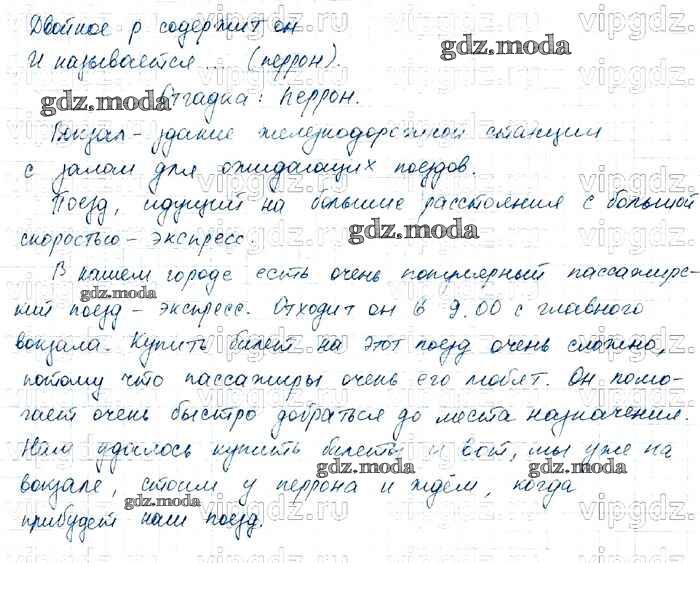 Двойное р содержит он
И называется ... (перрон).
Отгадка: перрон.
Вокзал - здание железнодорожной станции
с залом для ожидающих поездов.
Поезд, идущий на большие расстояния с большой
скоростью - экспресс.
В нашем городе есть очень популярный пассажирс-
кий поезд - экспресс. Отходит он в 9.00 с главного
вокзала. Купить билет на этот поезд очень сложно,
потому что пассажиры очень его любят. Он помо-
гает очень быстро добраться до места назначения.
Нам удалось купить билеты и вот, мы уже на
вокзале, стоим у перрона и ждём, когда
прибудет наш поезд.
gdz.moda
gdz.moda
gdz.moda
gdz.moda
gdz.moda
gdz.moda
gdz.moda
vipgdz.ru